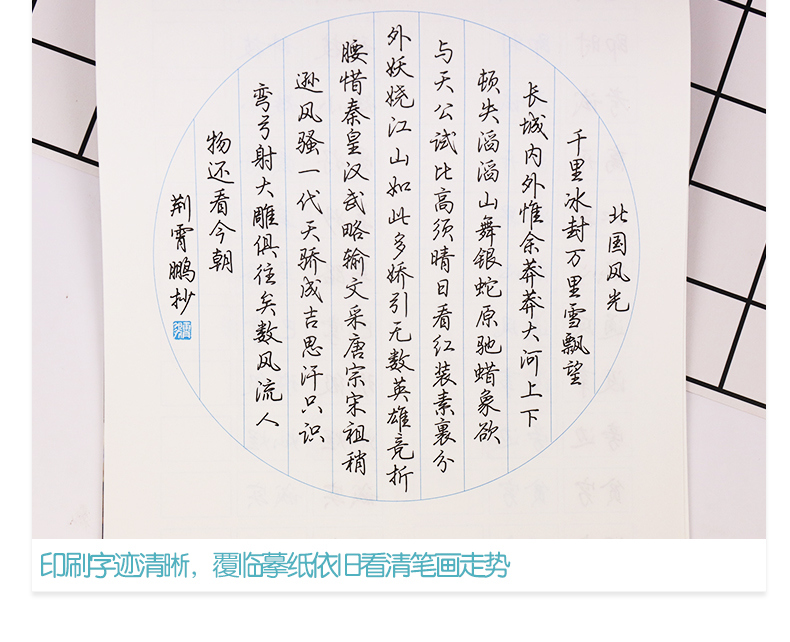 北国风光
千里冰封万里雪飘望
长城内外惟余莽莽大河上下
顿失滔滔山舞银蛇原驰蜡象欲
与天公试比高须晴日看红装素裹分
外妖娆江山如此多娇引无数英雄竞折
腰惜秦皇汉武略输文采唐宗宋祖稍
逊风骚一代天骄成吉思汗只识
弯弓射大雕俱往矣数风流人
物还看今朝
荆霄鹏抄
印刷字迹清晰，覆临摹纸依旧看清笔画走势